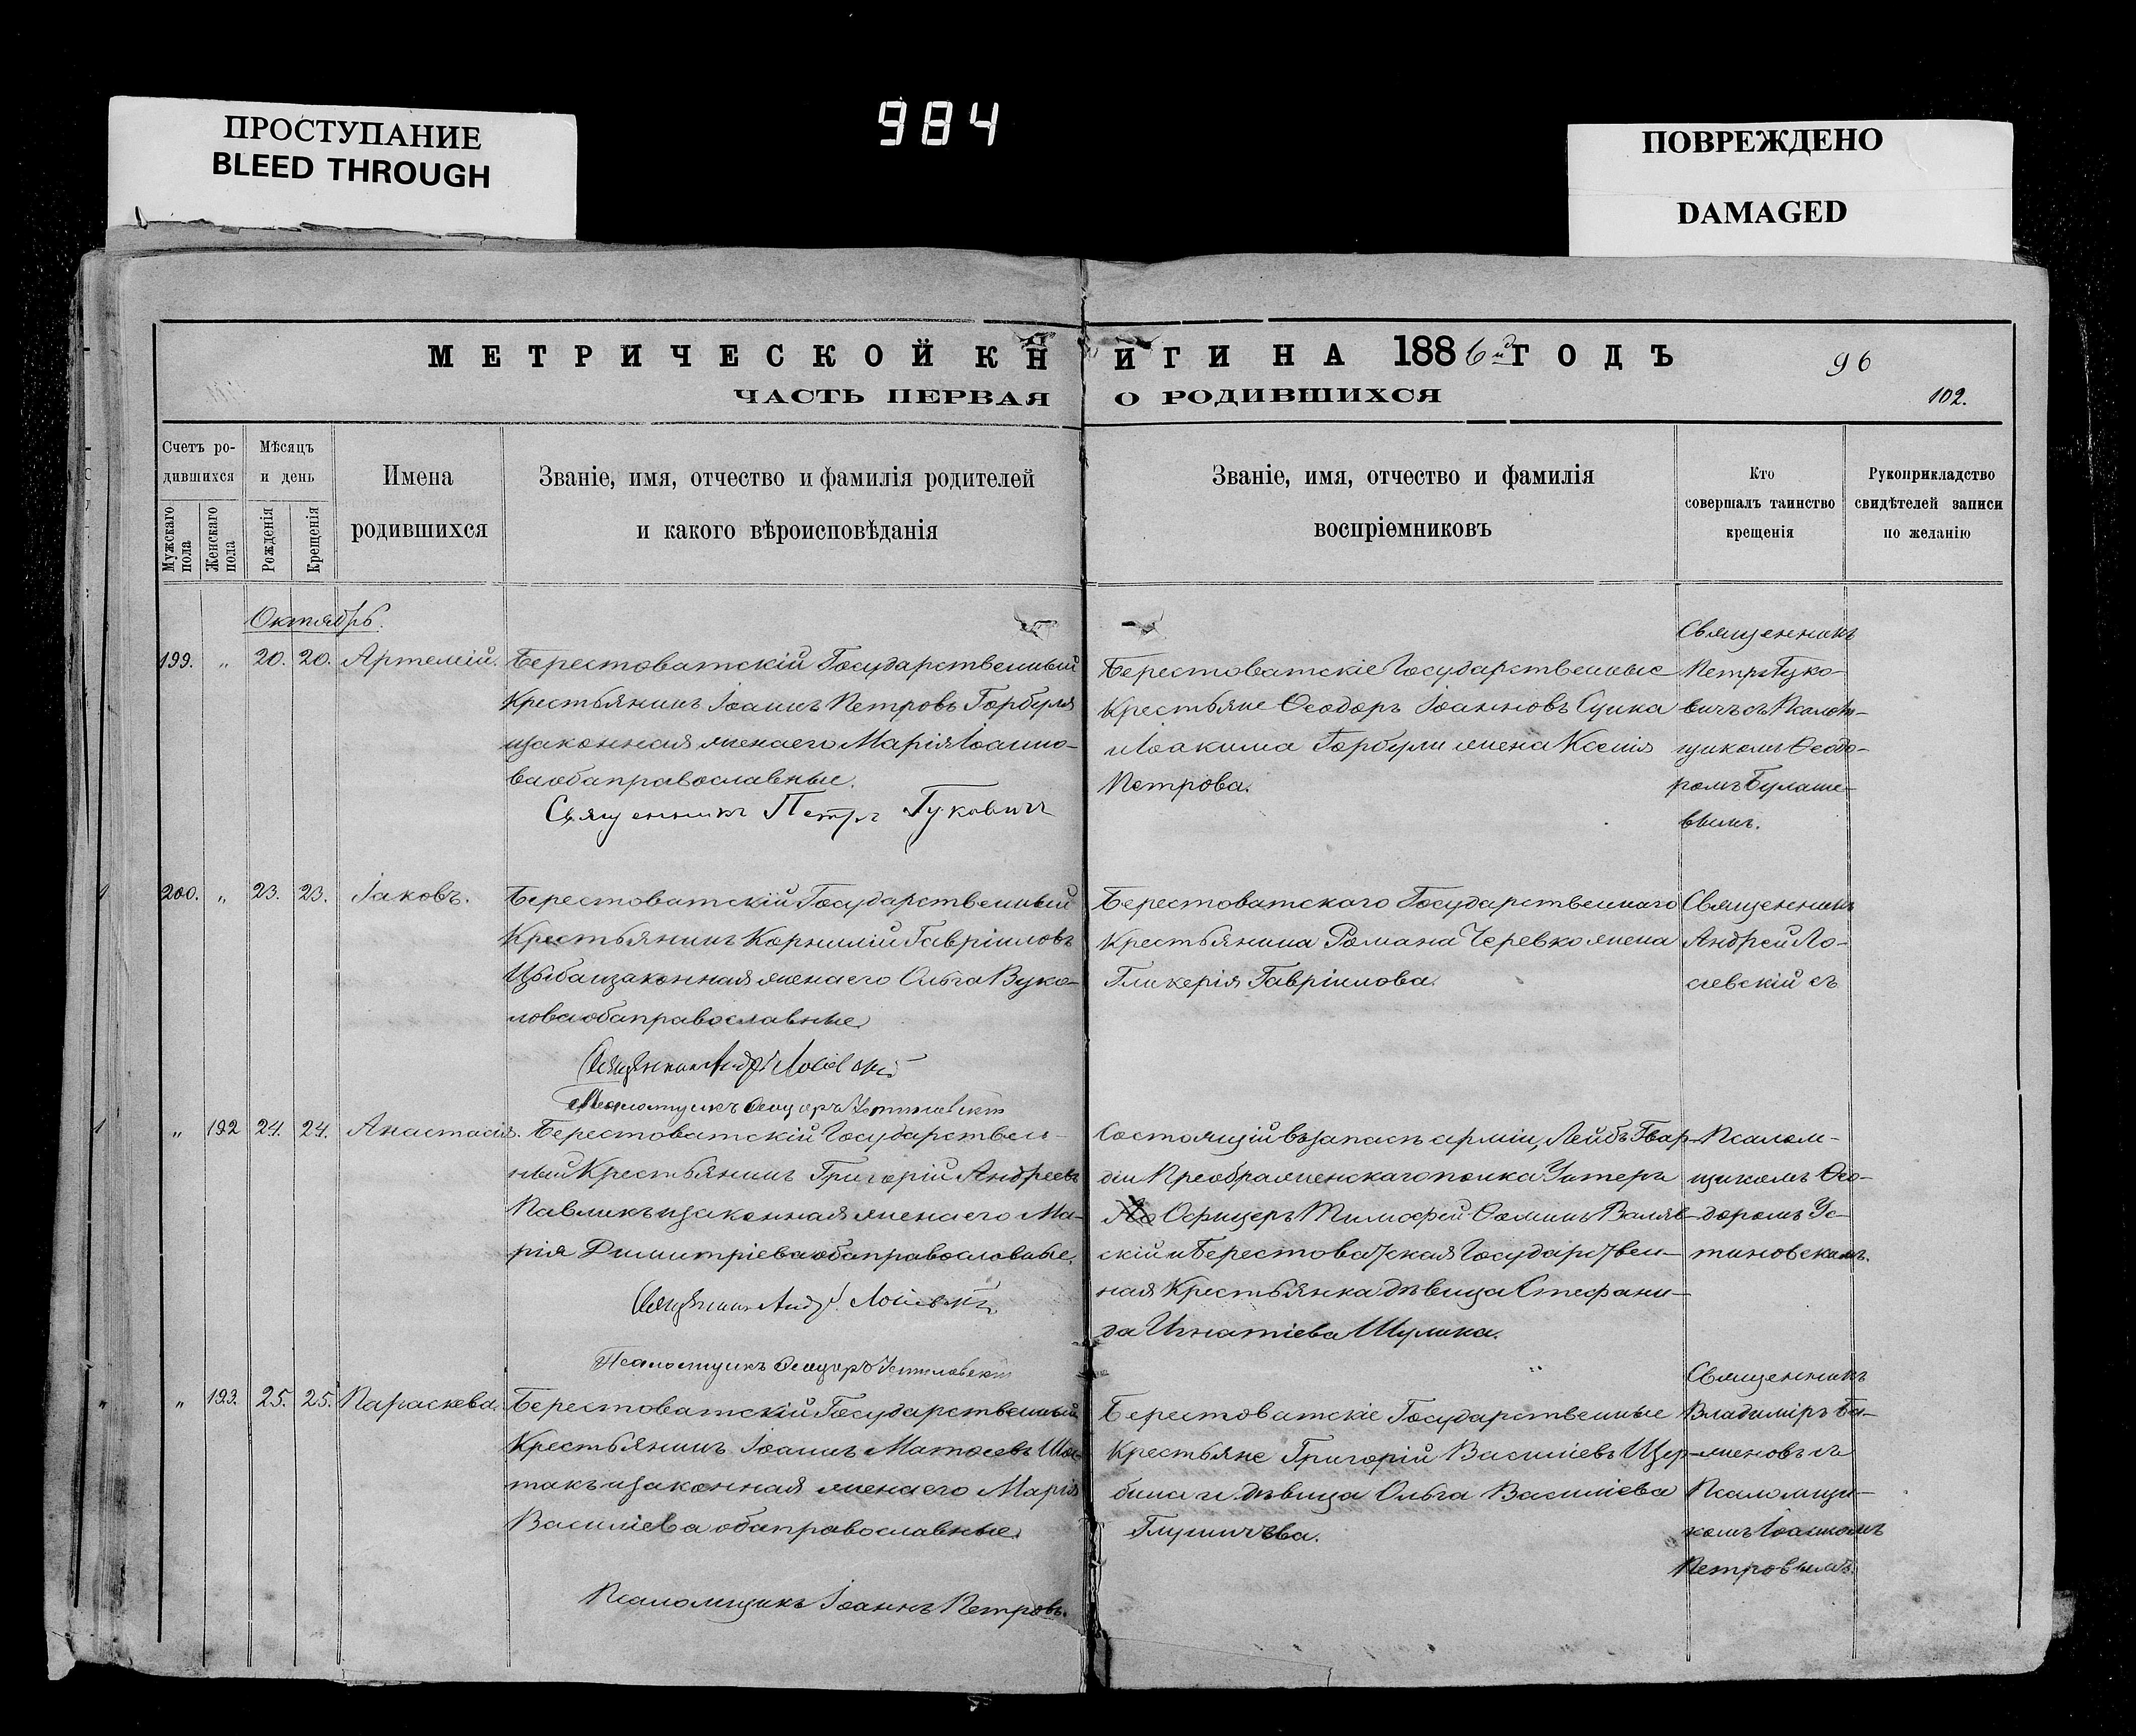 ПРОСТУПАНИЕ
BLEED THROUGH
984
ПОВРЕЖДЕНО
DAMAGED
МЕТРИЧЕСКОЙ КНИГИ НА 1886й ГОДЪ
96
ЧАСТЬ ПЕРВАЯ О РОДИВШИХСЯ
102.
Счетъ ро-
дившихся
Мужскаго пола
Женскаго пола
Мѣсяцъ
и день
Рожденія
Крещенія
Имена
родившихся
Званіе, имя, отчество и фамилія родителей
и какого вѣроисповѣданія
Званіе, имя, отчество и фамилія
воспріемниковъ
Кто
совершалъ таинство
крещенія
Рукоприкладство
свидѣтелей записи
по желанію
Октябрь.
199. „ 20. 20. Артемій.
Берестоватскій Государственный
Крестьянинъ Іоаннъ Петровъ Горбуля
изаконная женаего Марія Іоанно-
ва обаправославные.
Священникъ Петръ Гуковичъ
Берестоватскіе Государственные
Крестьяне Ѳеодоръ Іоанновъ Сушка
и Іоакима Горбули жена Ксенія
Петрова.
Священникъ
Петръ Гуко-
вичъ съ Псалом-
щикомъ Ѳеодо-
ромъ Булаше-
вымъ.
200. „ 23. 23. Іаковъ.
Берестоватскій Государственный
Крестьянинъ Корнилій Гавріиловъ
Цыба изаконная женаего Ольга Вуко-
лова обаправославные.
Священникъ Андрей Лосіевскій
Псаломщикъ Ѳеодоръ Устиновскій
Берестоватскаго Государственнаго
Крестьянина Романа Черевко жена
Гликерія Гавріилова.
Священникъ
Андрей Ло-
сіевскій съ
„ 192 24. 24. Анастасія.
Берестоватскій Государствен-
ный Крестьянинъ Григорій Андреевъ
Павликъ изаконная женаего Ма-
рія Димитріева обаправославные.
Священникъ Андр. Лосіевскій
Псаломщикъ Ѳеодоръ Устиновскій
Состоящій въ запасѣ арміи, Лейбъ Гвар-
діи Преображенскаго полка Унтеръ
Офицеръ Тимофей Ѳоминъ Валяв-
скій и Берестоватская Государствен-
ная Крестьянка дѣвица Стефани-
да Игнатіева Шулика.
Псалом-
щикомъ Ѳео-
доромъ Ус-
тиновскимъ.
„ 193. 25. 25. Параскева.
Берестоватскій Государственный
Крестьянинъ Іоаннъ Матѳеевъ Шос-
такъ изаконная женаего Марія
Василіева обаправославные.
Псаломщикъ Іоаннъ Петровъ.
Берестоватскіе Государственные
Крестьяне Григорій Василіевъ Щер-
бина и дѣвица Ольга Василіева
Священникъ
Владиміръ Ба-
женовъ съ
Псаломщи-
комъ Іоанномъ
Петровымъ.